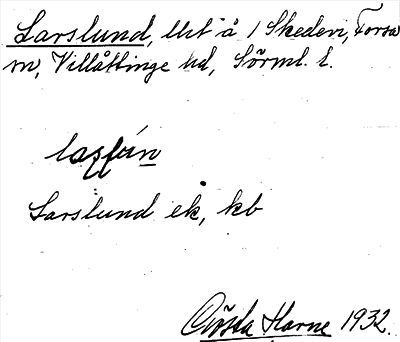 Larslund, Utt å 1 Skeden, Forssa
sn, Villåttinge hd, Sörml. l.
Larslund ek, kb
Gösta Harne 1932.